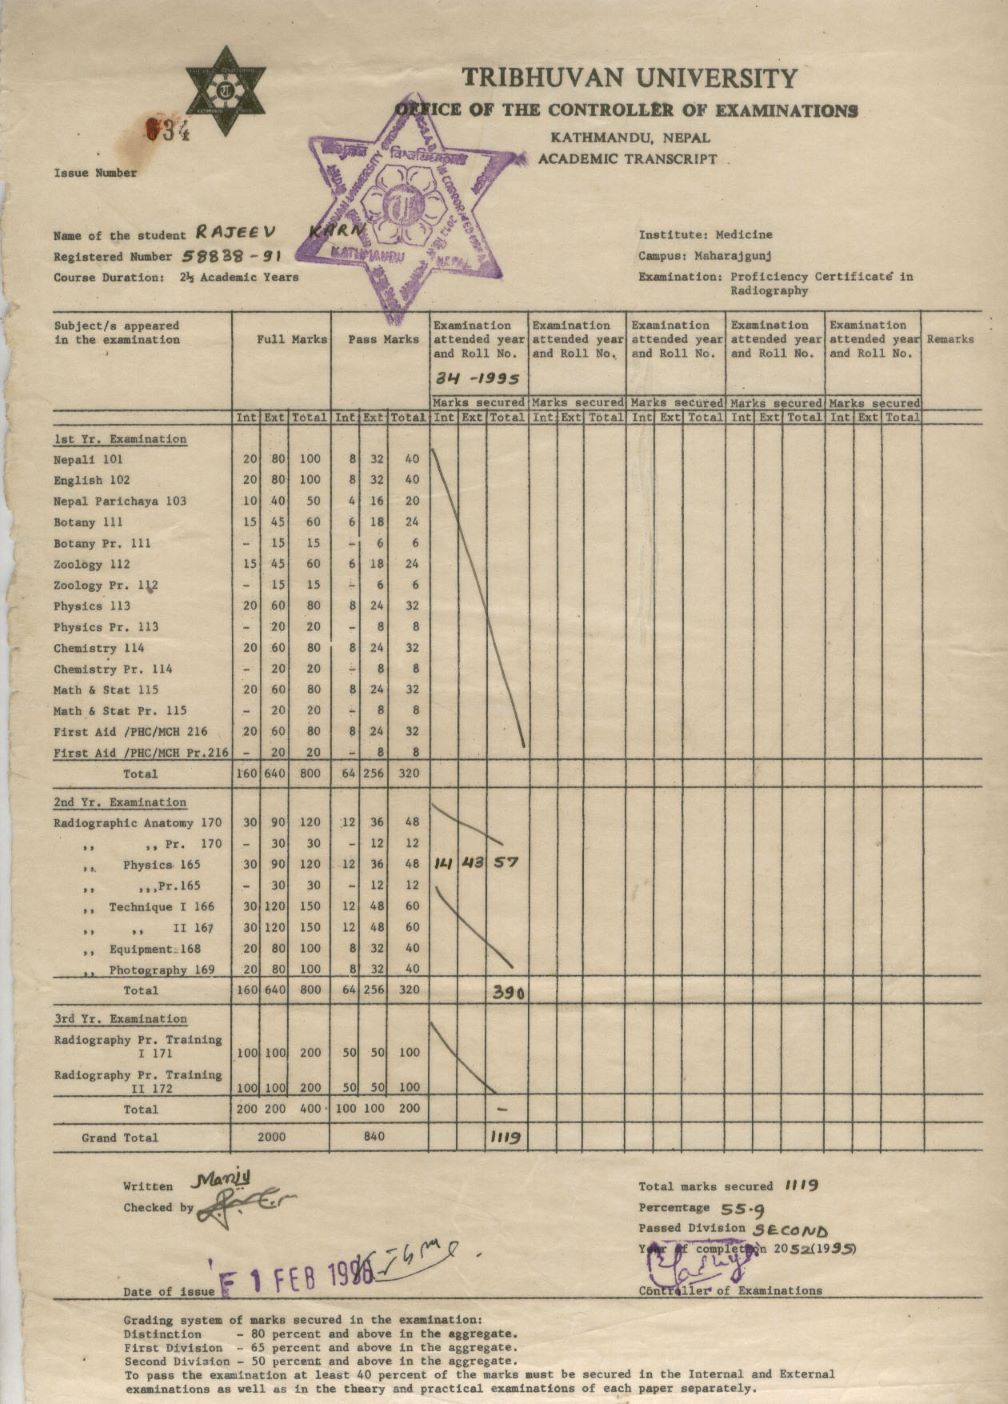 TRIBHUVAN UNIVERSITY
OFFICE OF THE CONTROLLER OF EXAMINATIONS
KATHMANDU, NEPAL
ACADEMIC TRANSCRIPT
034
Issue Number
KATHMANDU NEPAL
Name of the student RAJEEV KARN
Registered Number 58838-91
Course Duration: 2½ Academic Years
Institute: Medicine
Campus: Maharajgunj
Examination: Proficiency Certificate in
Radiography
Subject/s appeared in the examination Full Marks Pass Marks Examination attended year and Roll No. Examination attended year and Roll No. Examination attended year and Roll No. Examination attended year and Roll No. Examination attended year and Roll No. Remarks
34 -1995
Marks secured Marks secured Marks secured Marks secured Marks secured
Int Ext Total Int Ext Total Int Ext Total Int Ext Total Int Ext Total Int Ext Total Int Ext Total
1st Yr. Examination
Nepali 101 20 80 100 8 32 40
English 102 20 80 100 8 32 40
Nepal Parichaya 103 10 40 50 4 16 20
Botany 111 15 45 60 6 18 24
Botany Pr. 111 - 15 15 - 6 6
Zoology 112 15 45 60 6 18 24
Zoology Pr. 112 - 15 15 - 6 6
Physics 113 20 60 80 8 24 32
Physics Pr. 113 - 20 20 - 8 8
Chemistry 114 20 60 80 8 24 32
Chemistry Pr. 114 - 20 20 - 8 8
Math & Stat 115 20 60 80 8 24 32
Math & Stat Pr. 115 - 20 20 - 8 8
First Aid /PHC/MCH 216 20 60 80 8 24 32
First Aid /PHC/MCH Pr.216 - 20 20 - 8 8
Total 160 640 800 64 256 320
2nd Yr. Examination
Radiographic Anatomy 170 30 90 120 12 36 48
,, ,, Pr. 170 - 30 30 - 12 12
,, Physics 165 30 90 120 12 36 48 14 43 57
,, ,,,Pr.165 - 30 30 - 12 12
,, Technique I 166 30 120 150 12 48 60
,, ,, II 167 30 120 150 12 48 60
,, Equipment 168 20 80 100 8 32 40
,, Photography 169 20 80 100 8 32 40
Total 160 640 800 64 256 320 390
3rd Yr. Examination
Radiography Pr. Training
I 171 100 100 200 50 50 100
Radiography Pr. Training
II 172 100 100 200 50 50 100
Total 200 200 400 100 100 200 -
Grand Total 2000 840 1119
Written Manju
Checked by
Total marks secured 1119
Percentage 55.9
Passed Division SECOND
Year of completion 2052(1995)
Date of issue 1 FEB 1996
Controller of Examinations
Grading system of marks secured in the examination:
Distinction - 80 percent and above in the aggregate.
First Division - 65 percent and above in the aggregate.
Second Division - 50 percent and above in the aggregate.
To pass the examination at least 40 percent of the marks must be secured in the Internal and External
examinations as well as in the theory and practical examinations of each paper separately.